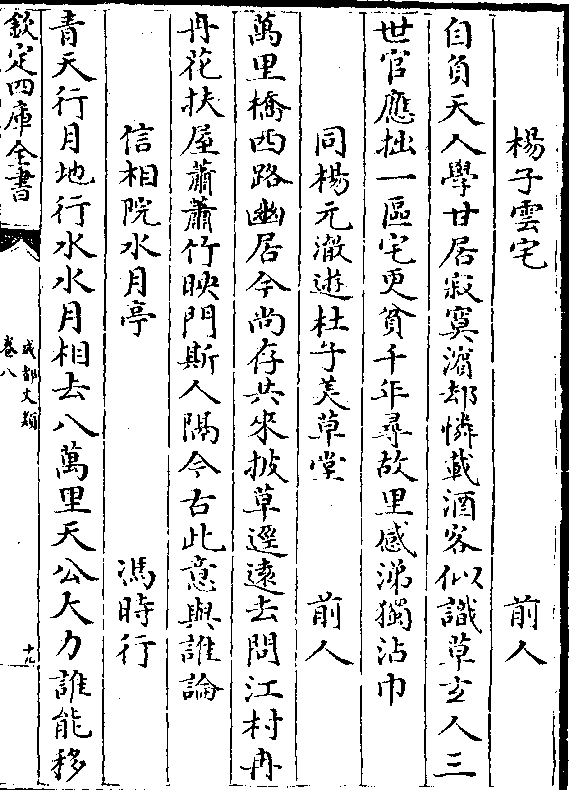 楊子雲宅 前人
自負天人學甘居寂寞濵却憐載酒客似識草𤣥人三
世官應拙一區宅更貧千年尋故里感涕獨沾巾
同楊元澈遊杜子美草堂 前人
萬里橋西路幽居今尚存共來披草逕遠去問江村冉
冉花扶屋蕭蕭竹映門斯人隔今古此意與誰論
信相院水月亭 馮時行
青天行月地行水水月相去八萬里天公大力誰能移
欽定四庫全書
成都文類
卷八
十九